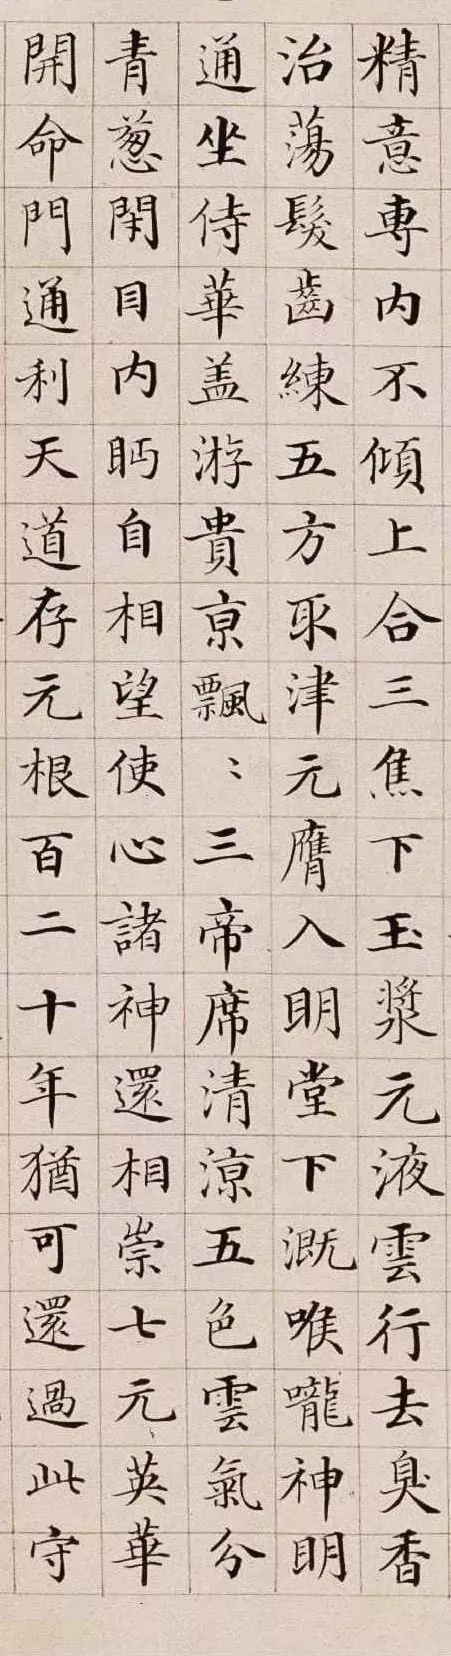 精意專內不傾上合三焦下玉漿元液雲行去臭香
治蕩髮齒練五方取津元膺入明堂下溉喉嚨神明
通坐侍華盖游貴亰飄〻三帝席清涼五色雲氣分
青葱閉目內眄自相望使心諸神還相崇七元英華
開命門通利天道存元根百二十年猶可還過此守